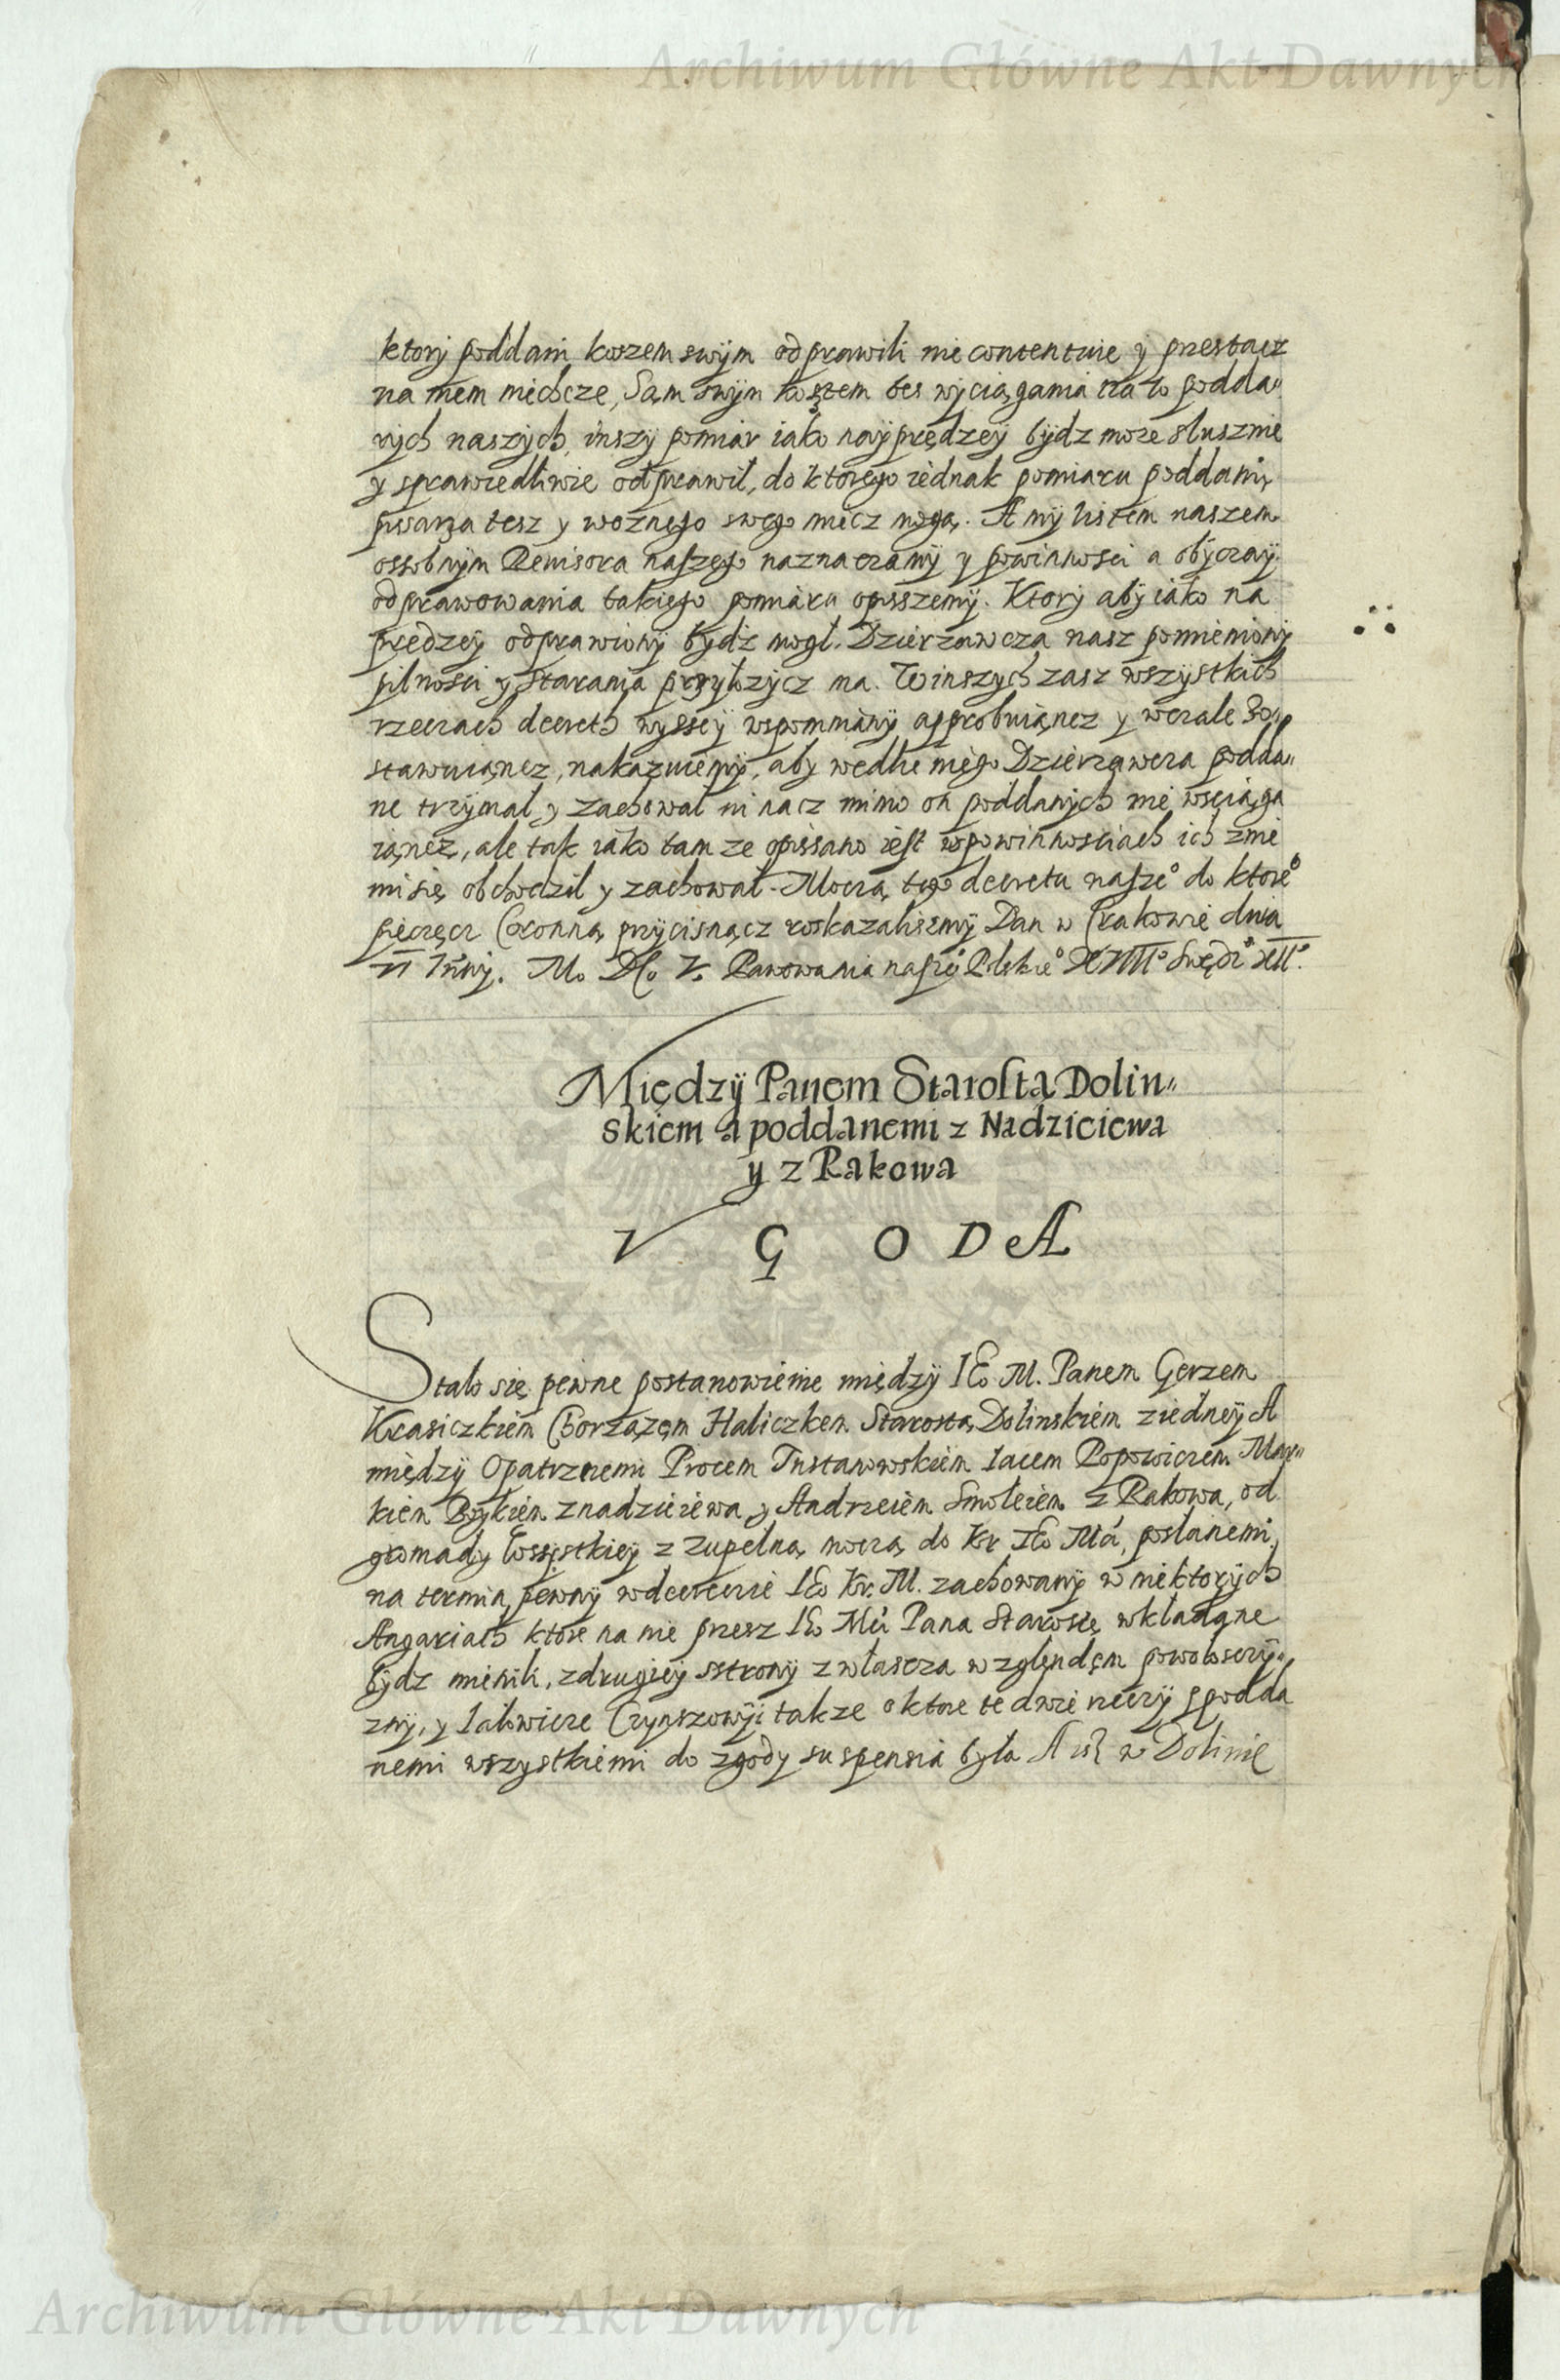 Archiwum Główne Akt Dawnych
ktorj poddani koszem swÿm odprawili nie contentuie y przestacz
na niem niechcze, Sam swÿm kosztem bes wyciągania na to podda„
nych naszych, inszy pomiar iako nayprędzeÿ bÿdz może słusznie
y sprawiedliwie odprawił, do ktorego iednak pomiaru poddani,
pisarza tesz y woznego swego miecz mogą. A mÿ listem naszem
ossobnÿm Rewisora naszego naznaczamÿ y powinnosci a obÿczaÿ
odprawowania takiego pomiaru opisszemÿ. Ktorÿ abÿ iako na
prędzeÿ odprawionÿ bÿdz mogł. Dzierzawcza nasz pomienionÿ
pilnosci y starania przyłozÿcz ma. W inszych zasz wszystkich
rzeczach decreth wysseÿ wspomnianÿ approbuiąncz y wczale Zo„
stawuiąncz, nakazuiemÿ, aby wedlie niego Dzierzawcza podda„
ne trzÿmał y zachował ni nacz mimo on poddanych nie wsciąga
iąncz, ale tak iako tam ze opissano iest wpowinnosciach ich znie
mi się obchodził y zachował. Moczą tego decretu nasze° do ktore°
pieczęcz Coronną przÿcisnącz roskazalismÿ Dan w Crakowie dnia
Panowania
Międzÿ Panem Starostą Dolin„
skiem a poddanemi z Nadzieiewa
y z Rakowa
V G O D A
Stało się pewne postanowienie międzÿ IEo M. Panem Gerzem
Krasiczkiem Chorzązem Haliczkem Starostą Dolinskiem ziedneÿ A
międzÿ Opatrznemi Procem Tustanowskiem Iacem Popowiczem Mar„
kiem Boÿkiem znadzieiewa y Andrzeiem Smoleiem z Rakowa, od
gromady wssystkieÿ z zupełną moczą do Kr IEo Mci, posłanemi,
na termin pewnÿ wdecrecie IEo Kr. M. zachowanÿ w niektorych
Angariach ktore na nie przesz IEo Mci Pana Starostę wkładane
bÿdz mieniłi, zdrugieÿ sstronÿ zwłascza wzglendem powołosczÿ„
znÿ, y Iałowicze Czynszowÿi takze o ktore te dwie rzeczÿ spodda
nemi wszystkiemi do zgody suspensia była A iz w Dolinie
Archiwum Główne Akt Dawnych